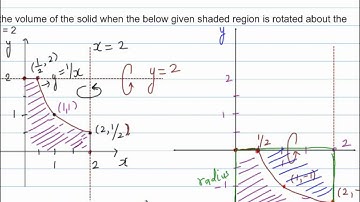 the volume of the solid when the below given shaded region is rotated about the
= 2
y
x = 2
(1/2, 2)
y = 1/x
y = 2
2
1
(1,1)
(2, 1/2)
1
2
x
y
2
1
1/2
1
2
radius
-1
(1, -1)
(2,